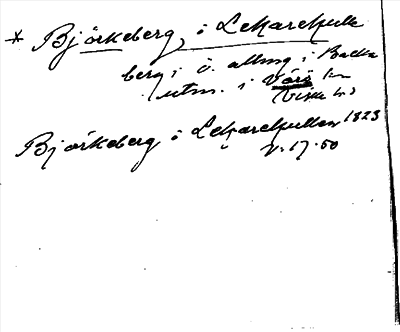 * Björkeberg, i Lekarekulle
berg i ö. allmg i Backa
utm. i Värö sn
Viske hd
Björkeberg i Lekarekullen 1823
v. 17. 50